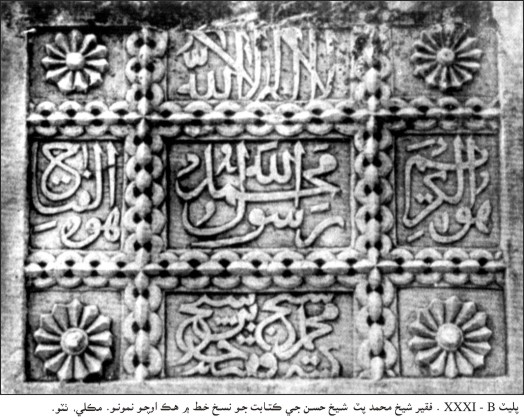 لا اله الا الله
هو الكريم
محمد رسول الله
هو الفتاح
پليٽ XXXI - B . فقير شيخ محمد پٽ شيخ حسن جي ڪتابت جو نسخ خط ۾ هڪ اوچو نمونو. مڪلي، ٺٽو.